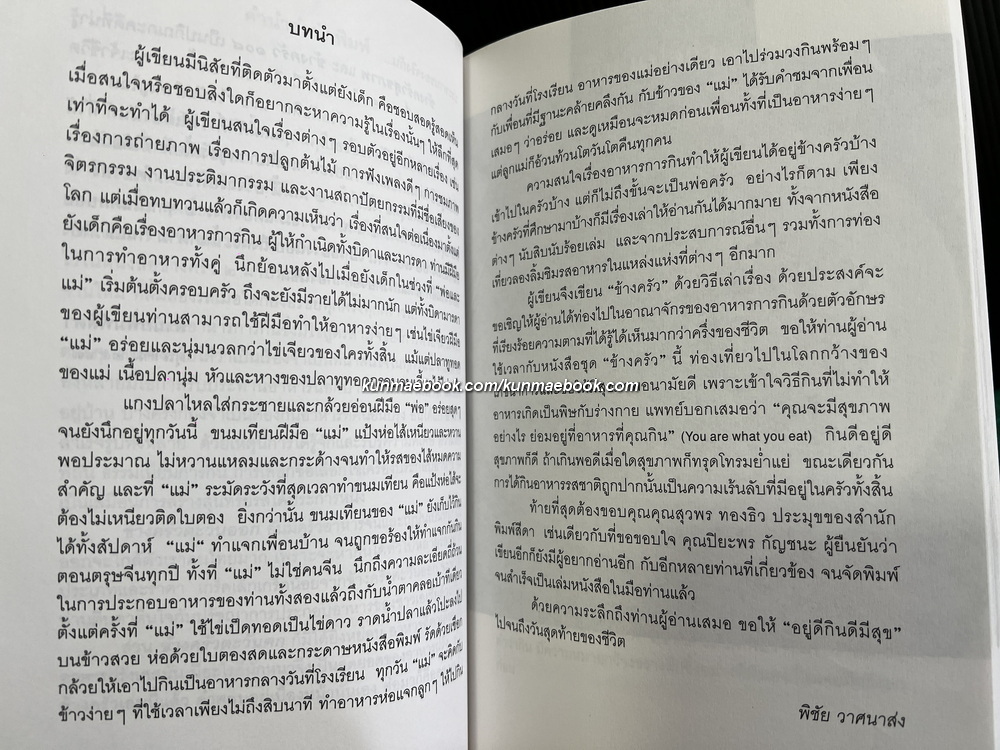 บทนำ
ผู้เขียนมีนิสัยที่ติดตัวมาตั้งแต่ยังเด็ก คือชอบสอดรู้สอดเห็น
เมื่อสนใจหรือชอบสิ่งใดก็อยากจะหาความรู้ในเรื่องนั้นๆ ให้ลึกที่สุด
เท่าที่จะทำได้ ผู้เขียนสนใจเรื่องต่างๆ รอบตัวอยู่อีกหลายเรื่อง เช่น
เรื่องการถ่ายภาพ เรื่องการปลูกต้นไม้ การฟังเพลงดีๆ การชมภาพ
จิตรกรรม งานประติมากรรม และงานสถาปัตยกรรมที่มีชื่อเสียงของ
โลก แต่เมื่อทบทวนแล้วก็เกิดความเห็นว่า เรื่องที่สนใจต่อเนื่องมาตั้งแต่
ยังเด็กคือเรื่องอาหารการกิน ผู้ให้กำเนิดทั้งบิดาและมารดา ท่านมีฝีมือ
ในการทำอาหารทั้งคู่ นึกย้อนหลังไปเมื่อยังเด็กในช่วงที่ “พ่อและ
แม่” เริ่มต้นตั้งครอบครัว ถึงจะยังมีรายได้ไม่มากนัก แต่ทั้งบิดามารดา
ของผู้เขียนท่านสามารถใช้ฝีมือทำให้อาหารง่ายๆ เช่นไข่เจียวฝีมือ
“แม่” อร่อยและนุ่มนวลกว่าไข่เจียวของใครทั้งสิ้น แม้แต่ปลาทูทอด
ของแม่ เนื้อปลานุ่ม หัวและหางของปลาทูทอด
แกงปลาไหลใส่กระชายและกล้วยอ่อนฝีมือ “พ่อ” อร่อยสุดๆ
จนยังนึกอยู่ทุกวันนี้ ขนมเทียนฝีมือ “แม่” แป้งห่อไส้เหนียวและหวาน
พอประมาณ ไม่หวานแหลมและกระด้างจนทำให้รสของไส้หมดความ
สำคัญ และที่ “แม่” ระมัดระวังที่สุดเวลาทำขนมเทียน คือแป้งห่อไส้จะ
ต้องไม่เหนียวติดใบตอง ยิ่งกว่านั้น ขนมเทียนของ “แม่” ยังเก็บไว้กิน
ได้ทั้งสัปดาห์ “แม่“ ทำแจกเพื่อนบ้าน จนถูกขอร้องให้ทำแจกกันกิน
ตอนตรุษจีนทุกปี ทั้งที่ “แม่” ไม่ใช่คนจีน นึกถึงความละเอียดถี่ถ้วน
ในการประกอบอาหารของท่านทั้งสองแล้วถึงกับน้ำตาคลอเบ้าทีเดียว
ตั้งแต่ครั้งที่ “แม่” ใช้ไข่เป็ดทอดเป็นไข่ดาว ราดน้ำปลาแล้วโปะลงไป
บนข้าวสวย ห่อด้วยใบตองสดและกระดาษหนังสือพิมพ์ รัดด้วยเชือก
กล้วยให้เอาไปกินเป็นอาหารกลางวันที่โรงเรียน ทุกวัน “แม่” จะคิดกับ
ข้าวง่ายๆ ที่ใช้เวลาเพียงไม่ถึงสิบนาที ทำอาหารห่อแจกลูกๆ ให้ไปกิน
กลางวันที่โรงเรียน อาหารของแม่อย่างเดียว เอาไปร่วมวงกินพร้อมๆ
กับเพื่อนที่มีฐานะคล้ายคลึงกัน กับข้าวของ “แม่” ได้รับคำชมจากเพื่อน
เสมอๆ ว่าอร่อย และดูเหมือนจะหมดก่อนเพื่อนทั้งที่เป็นอาหารง่ายๆ
แต่ลูกแม่ก็อ้วนท้วนโตวันโตคืนทุกคน
ความสนใจเรื่องอาหารการกินทำให้ผู้เขียนได้อยู่ข้างครัวบ้าง
เข้าไปในครัวบ้าง แต่ก็ไม่ถึงขั้นจะเป็นพ่อครัว อย่างไรก็ตาม เพียง
ข้างครัวที่ศึกษามาบ้างก็มีเรื่องเล่าให้อ่านกันได้มากมาย ทั้งจากหนังสือ
ต่างๆ นับสิบนับร้อยเล่ม และจากประสบการณ์อื่นๆ รวมทั้งการท่อง
เที่ยวลองลิ้มชิมรสอาหารในแหล่งแห่งที่ต่างๆ อีกมาก
ผู้เขียนจึงเขียน “ข้างครัว” ด้วยวิธีเล่าเรื่อง ด้วยประสงค์จะ
ขอเชิญให้ผู้อ่านได้ท่องไปในอาณาจักรของอาหารการกินด้วยตัวอักษร
ที่เรียงร้อยความตามที่ได้รู้ได้เห็นมากว่าครึ่งของชีวิต ขอให้ท่านผู้อ่าน
ใช้เวลากับหนังสือชุด “ข้างครัว” นี้ ท่องเที่ยวไปในโลกกว้างของ
สุขอนามัยดี เพราะเข้าใจวิธีกินที่ไม่ทำให้
อาหารเกิดเป็นพิษกับร่างกาย แพทย์บอกเสมอว่า “คุณจะมีสุขภาพ
อย่างไร ย่อมอยู่ที่อาหารที่คุณกิน” (You are what you eat) กินดีอยู่ดี
สุขภาพก็ดี ถ้าเกินพอดีเมื่อใดสุขภาพก็ทรุดโทรมย่ำแย่ ขณะเดียวกัน
การได้กินอาหารรสชาติถูกปากนั้นเป็นความเร้นลับที่มีอยู่ในครัวทั้งสิ้น
ท้ายที่สุดต้องขอบคุณคุณสุวพร ทองธิว ประมุขของสำนัก
พิมพ์สีดา เช่นเดียวกับที่ขอขอบใจ คุณปิยะพร กัญชนะ ผู้ยืนยันว่า
เขียนอีกก็ยังมีผู้อยากอ่านอีก กับอีกหลายท่านที่เกี่ยวข้อง จนจัดพิมพ์
จนสำเร็จเป็นเล่มหนังสือในมือท่านแล้ว
ด้วยความระลึกถึงท่านผู้อ่านเสมอ ขอให้ “อยู่ดีกินดีมีสุข”
ไปจนถึงวันสุดท้ายของชีวิต
พิชัย วาศนาส่ง
kunmaebook.com/kunmaebook.com